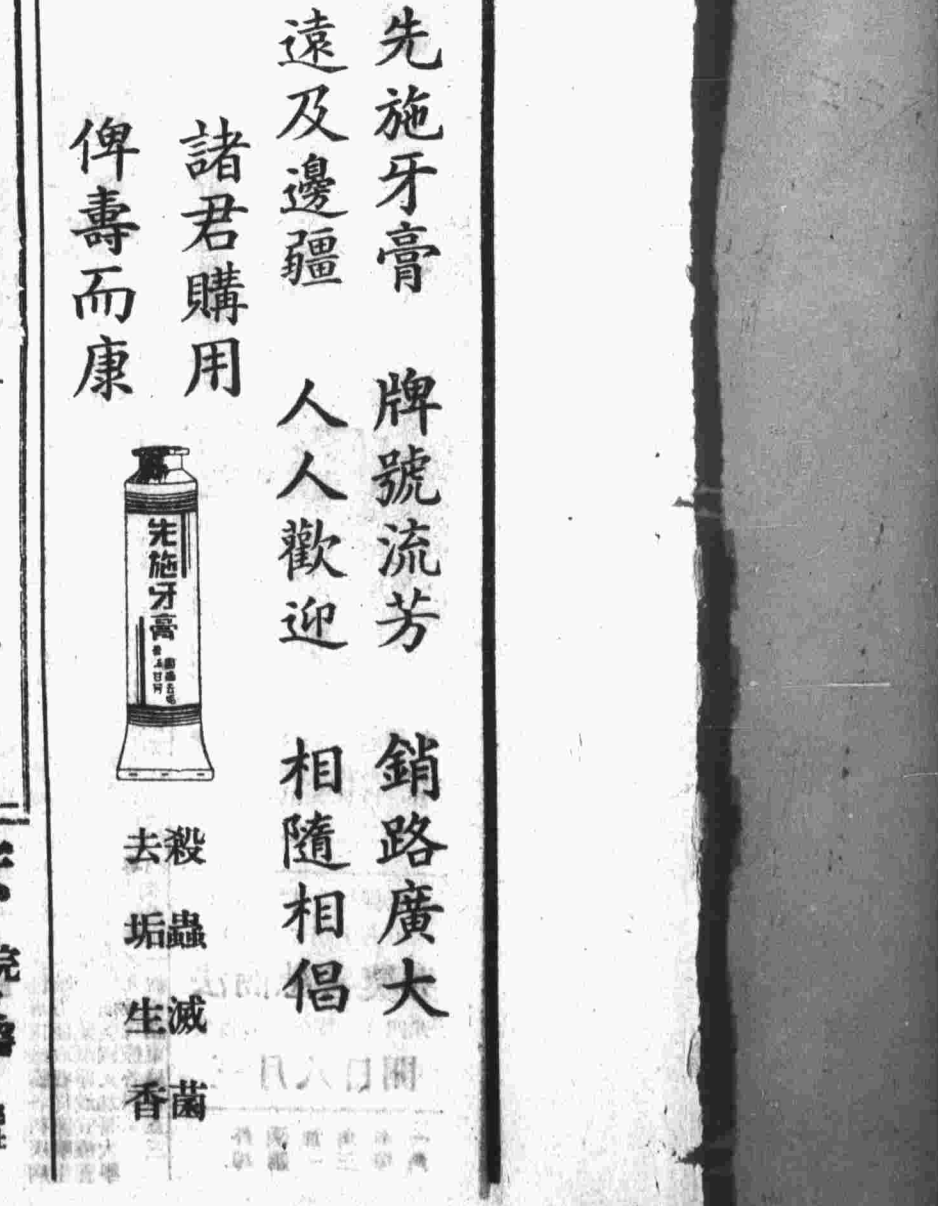 先施牙膏 牌號流芳 銷路廣大
遠及邊疆 人人歡迎 相隨相倡
諸君購用
俾壽而康
先施牙膏
殺蟲滅菌
去垢生香